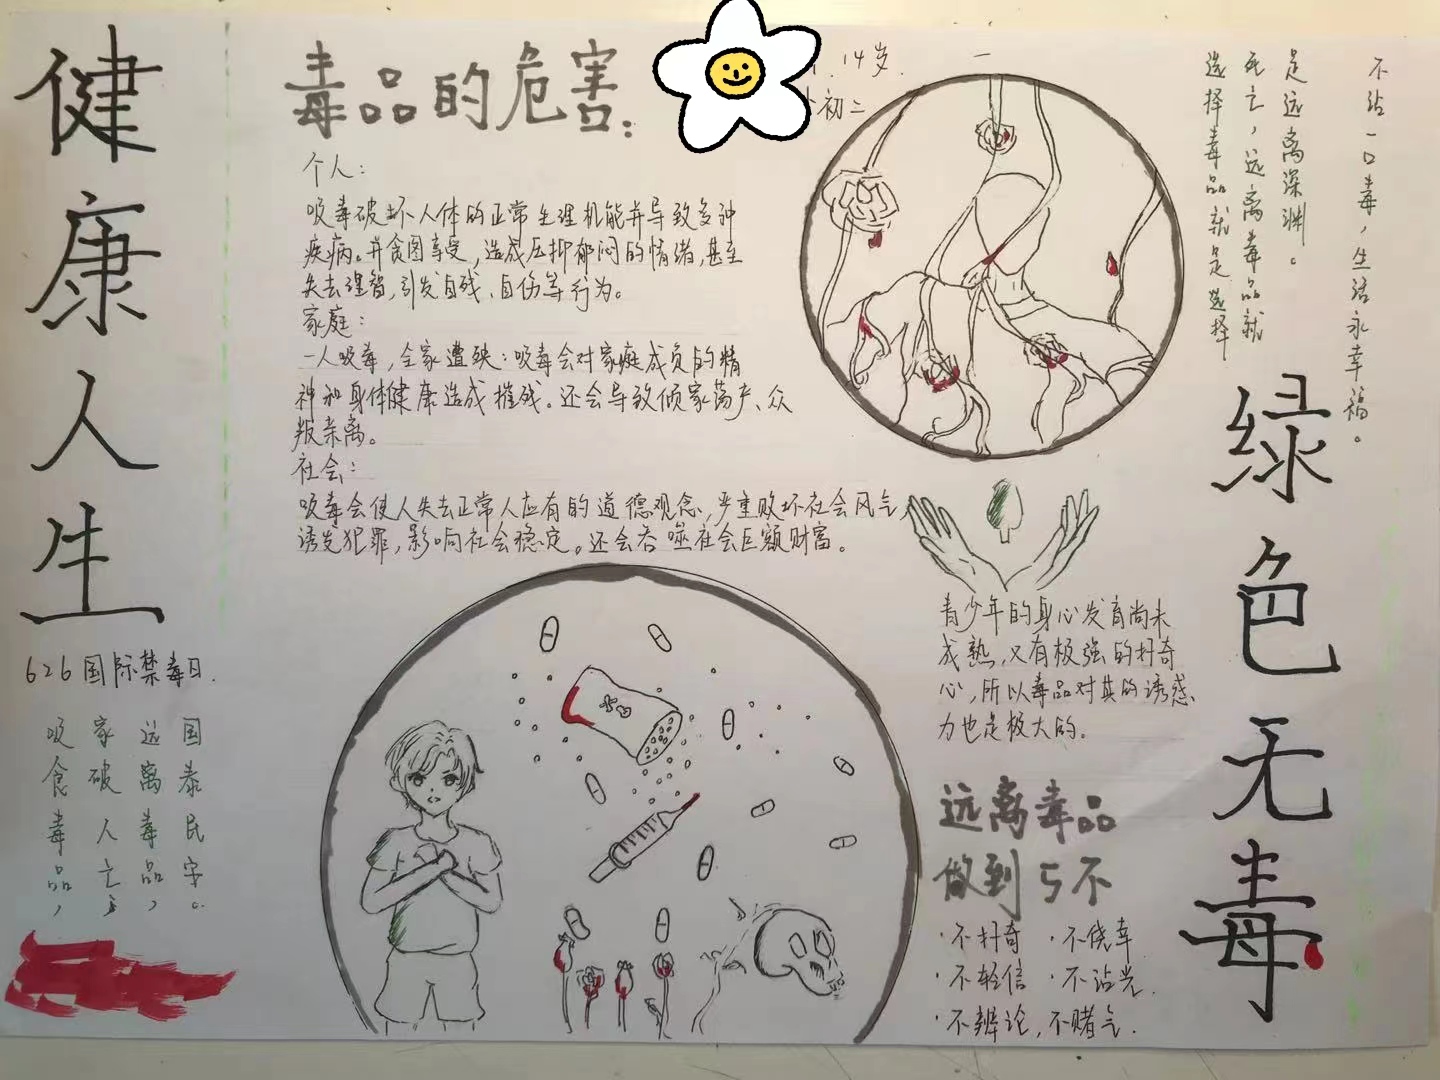 健康人生
626国际禁毒日.
吸食毒品,
家破人亡;
远离毒品,
国泰民安。
毒品的危害:
14岁.
初二
个人:
吸毒破坏人体的正常生理机能并导致多种
疾病。并贪图享受,造成压抑郁闷的情绪,甚至
失去理智,引发自残、自伤等行为。
家庭:
一人吸毒,全家遭殃:吸毒会对家庭成员的精
神和身体健康造成摧残。还会导致倾家荡产、众
叛亲离。
社会:
吸毒会使人失去正常人应有的道德观念,严重败坏社会风气,
诱发犯罪,影响社会稳定。还会吞噬社会巨额财富。
选择毒品就是选择
死亡,远离毒品就
是远离深渊。
不沾一口毒,生活永幸福。
绿色无毒
青少年的身心发育尚未
成熟,又有极强的好奇
心,所以毒品对其的诱惑
力也是极大的。
远离毒品
做到5不
·不好奇 ·不侥幸
·不轻信 ·不沾光.
·不辨论,不赌气.